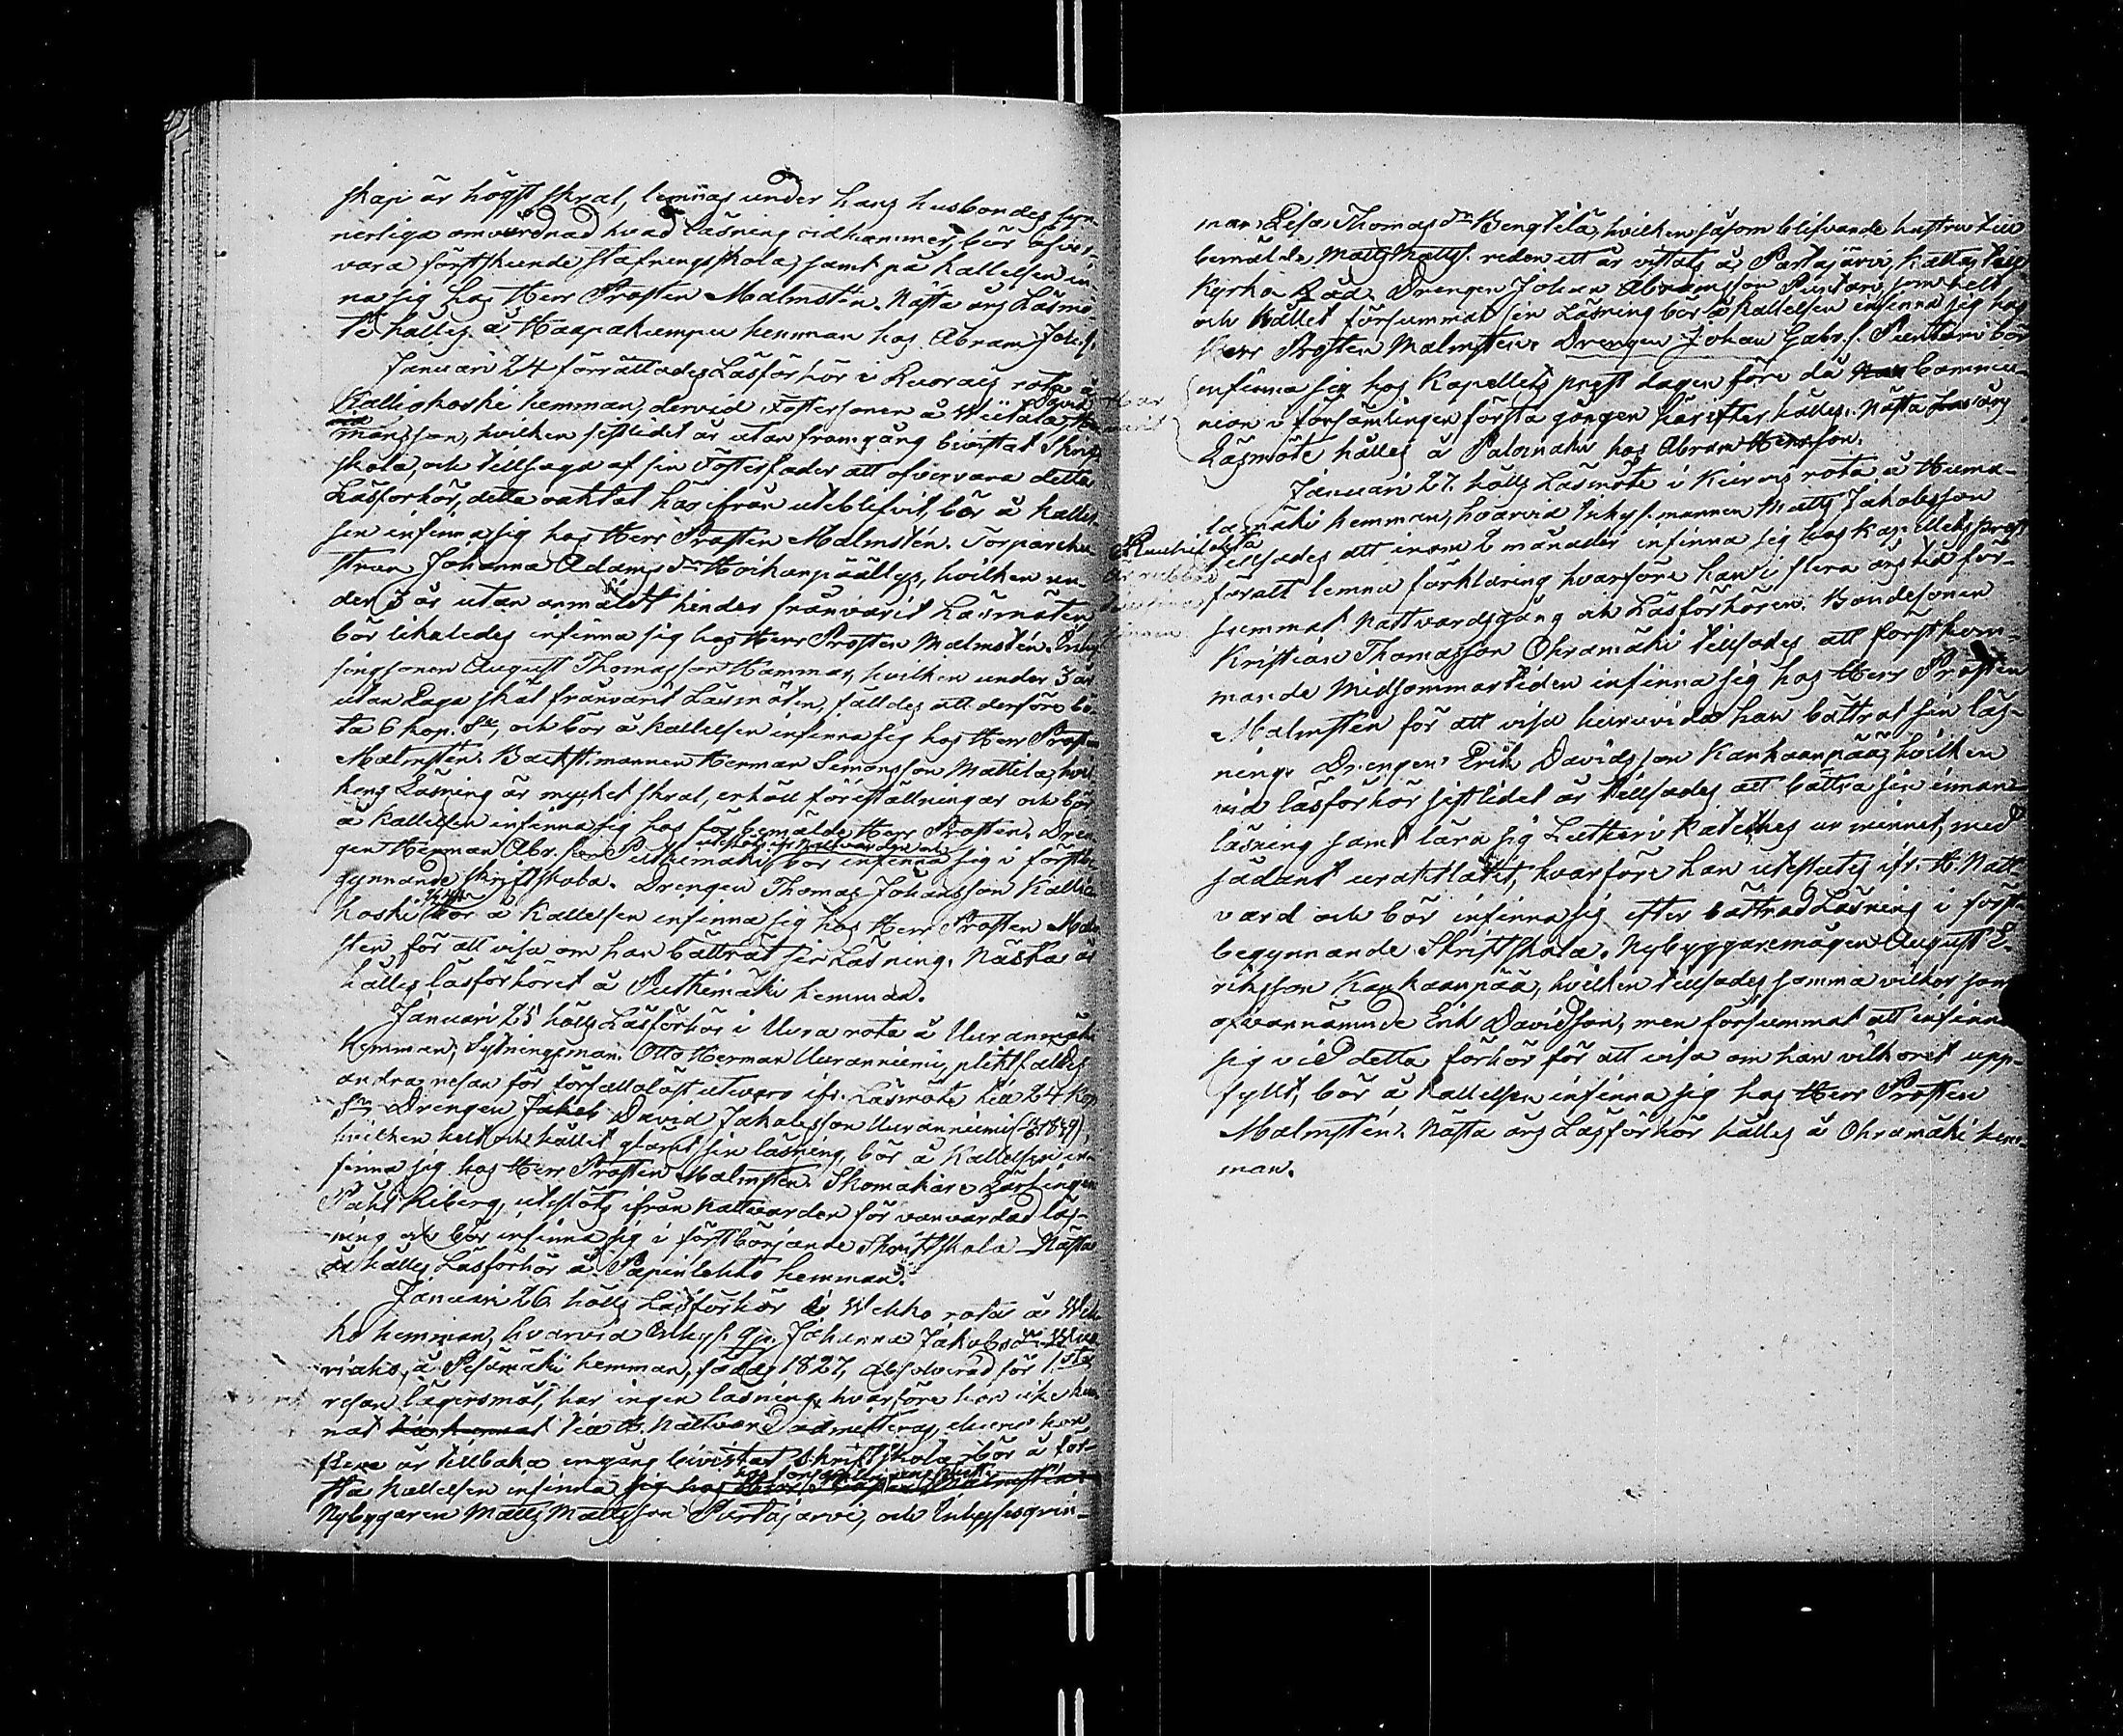 skap är högst skral, lemnas under hans husbondes syn-
nerliga omvårdnad hvad läsning vidkommer, bör öfver-
vara först skeende stafningsskola, samt på kallelsen in-
na sig hos Herr Prosten Malmstén. Nästa års Läsmö-
te hålles å Haapakumpu hemman hos Abram Joh.s.
Januari 24 förrättades Läsförhör i Kuoraus rota å
Kalliokoski hemman, dervid Fostersonen å Wiitala, David
mansson, hvilken sistlidet år utan framgång bivistat Skrift
skola, och tillsagd af sin Fosterfader att öfvervara detta
Läsförhör, detta oaktat här ifrån uteblifvit, bör å kallel-
sen infinna sig hos Herr Prosten Malmstén. Torparehu-
strun Johanna Adamsdr Hoikanpäällys, hvilken un-
der 3 år utan anmäldt hinder frånvarit Läsmöten
bör likaledes infinna sig hos Herr Prosten Malmstén. Inhy-
singsonen August Thomasson Hammar, hvilken under 3 år
utan Laga skäl frånvarit Läsmöten, fälldes att derföre bö-
ta 6 kop. Sr, och bör å kallelsen infinna sig hos Herr Prosten
Malmstén. Backstumannen Herman Simonsson Mattila, hvil-
kens Läsning är mycket skral, erhöll föreställningar och bör
å kallelsen infinna sig hos förbemälde Herr Prosten. Dren-
gen Herman Abr. son Puthimäki utestötes ifr. Nattvarden och bör infinna sig i först be-
gynnande skriftskola. Drengen Thomas Johansson Kallio-
koski bör å Kallelsen infinna sig hos Herr Prosten Malm-
sten för att visa om han bättrat sin Läsning. Nästa år
hålles läsförhöret å Puthimäki hemman.
Januari 25 hölls Läsförhör i Uura rota å Uuranmäki
hemman; Sytningsman. Otto Herman Uuranniemi, pliktfälldes
andra resan för förfallolöst utevaro ifr. Läsmöte till 24 kop
Sr. Drengen Jakob David Jakobsson Uuranniemi
hvilken helt och hållit glömt sin läsning, bör å Kallelsen in-
finna sig hos Herr Prosten Malmstén. Skomakare Lärlingen
Påhl Riberg, utestöts ifrån Nattvarden för vanvårdad läs-
ning och bör infinna sig i först börjande Skriftskola. Nästa
år hålles Läsförhör å Papinlehto hemman.
Januari 26. hölls Läsförhör i Wehko rota å Weh-
ko hemman, hvarvid Inhys. qn. Johanna Jakobsdr
å Pesämäki hemman, född 1827, absolverad för 1sta
resan lägersmål, har ingen läsning, hvarföre hon icke kun-
nat till H. Nattvard admitteras, ehuru hon
flera år tillbaka en gång bevistat Skriftskola, bör å för-
sta kallelsen infinna sig hos Herr Prosten Malmstén
Nybyggaren Matts Mattsson Partajärvi, och Inhysesqvin-
nan Lisa Thomasdr Bengtilä, hvilken såsom blifvande hustru till
bemälde Matts Matts. redan ett år vistats å Partajärvi, kallas till
Kyrko Råd. Drengen Johan Abramsson Puntari, som helt
och hållet försummat sin Läsning bör å kallelsen infinna sig hos
Herr Prosten Malmstén. Drengen Johan Gabr.s. Puntari bör
infinna sig hos Kapellets prest dagen före då Commu-
nion i församlingen första gången härefter hålles. Nästa års
Läsmöte hålles å Palomäki hos Abram Hansson.
Januari 27. hölls Läsmöte i Kuivas rota å Huma-
lamäki hemman, hvarvid Inhys. mannen Matts Jakobsson
tillsades att inom 2 månader infinna sig hos Kapellets prest
föratt lemna förklaring hvarföre han i flera års tid för-
summat Nattvardsgång och Läsförhören. Bondesonen
Kristian Thomasson Ohramäki tillsades att först kom-
mande Midsommartiden infinna sig hos Herr Prosten
Malmstén för att visa huruvida han bättrat sin läs-
ning. Drengen Erik Davidsson Kankaanpää, hvilken
vid läsförhör sistlidet år tillsades att bättra sin innan-
läsning samt lära sig Lutheri Kateches ur minnet, med
sådant uraktlåtit, hvarföre han uteslutes ifr. H. Natt-
vard och bör infinna sig efter bättrad Läsning i först
begynnande Skriftskola. Nybyggaremågen August E-
riksson Kankaanpää, hvilken tillsades samma vilkor som
ofvannämnde Erik Davidsson, men försummat att infinna
sig vid detta förhör för att visa om han vilkoret upp-
fyllt, bör å kallelsen infinna sig hos Herr Prosten
Malmstén. Nästa års Läsförhör hålles å Ohramäki hem-
man.